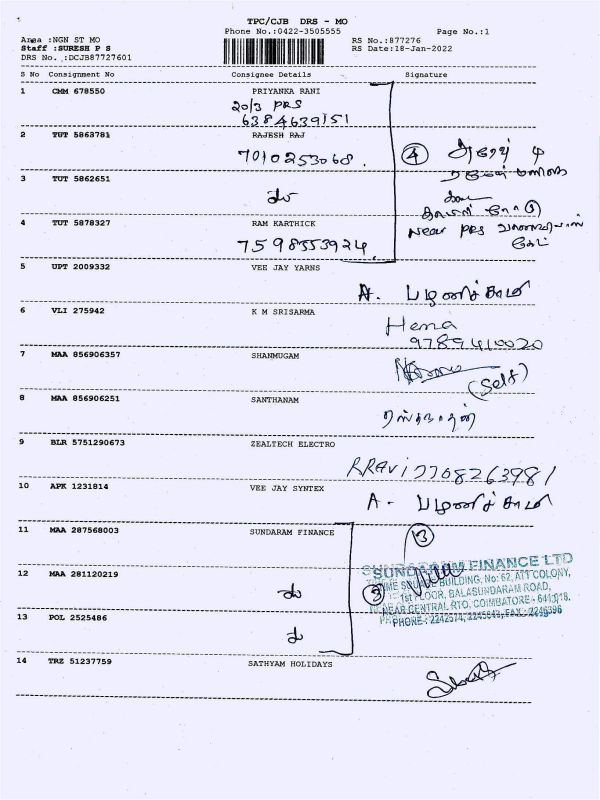 TPC/CJB DRS - MO
Phone No.:0422-3505555
Page No.:1
Area :NGN ST MO
RS No.:877276
Staff :SURESH P S
RS Date:18-Jan-2022
DRS No. :DCJB87727601
S No Consignment No Consignee Details Signature
1 CMM 678550 PRIYANKA RANI
20/3 PRS
6384639151
2 TUT 5863781 RAJESH RAJ
7010253068.
4
3 TUT 5862651
4 TUT 5878327 RAM KARTHICK
Near PRS
7598553924.
5 UPT 2009332 VEE JAY YARNS
A. பழனிச்சாமி
6 VLI 275942 K M SRISARMA
Hema
9789410020
7 MAA 856906357 SHANMUGAM
(Self)
8 MAA 856906251 SANTHANAM
9 BLR 5751290673 ZEALTECH ELECTRO
RRavi 7708263981
10 APK 1231814 VEE JAY SYNTEX
A - பழனிச்சாமி
11 MAA 287568003 SUNDARAM FINANCE
3
SUNDARAM FINANCE LTD
12 MAA 281120219
BUILDING, No: 62, ATT COLONY,
1st FLOOR, BALASUNDARAM ROAD,
NEAR CENTRAL RTO, COIMBATORE - 641 018.
13 POL 2525486
14 TRZ 51237759 SATHYAM HOLIDAYS